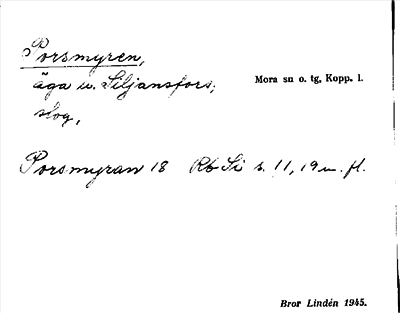 Porsmyren,
äga u. Siljansfors,
skog,
Mora sn o. tg, Kopp. l.
Porsmyran 18 Rb Si s. 11, 19 m. fl.
Bror Lindén 1945.